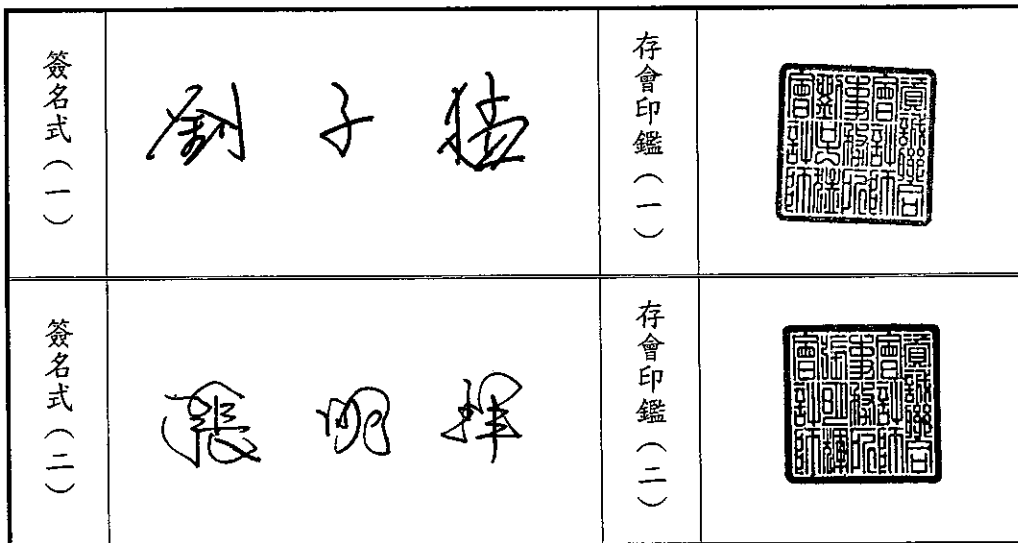 簽名式（一）
劉子猛
存會印鑑（一）
資誠聯合
會計師
事務所
劉子猛
會計師
簽名式（二）
張明輝
存會印鑑（二）
資誠聯合
會計師
事務所
張明輝
會計師